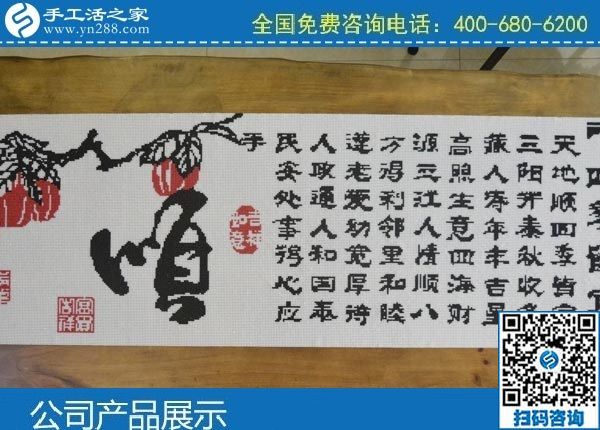 手工活之家
www.yn288.com
全国免费咨询电话：400-680-6200
天地顺四季皆
三阳开泰秋收冬
藏人寿年丰吉星
高照生意四海财
源三江人情顺八
方得利邻里和睦
尊老爱幼宽厚待
人政通人和国泰
民安处事称心应
手
吉祥如意
顺
公司产品展示
扫码咨询